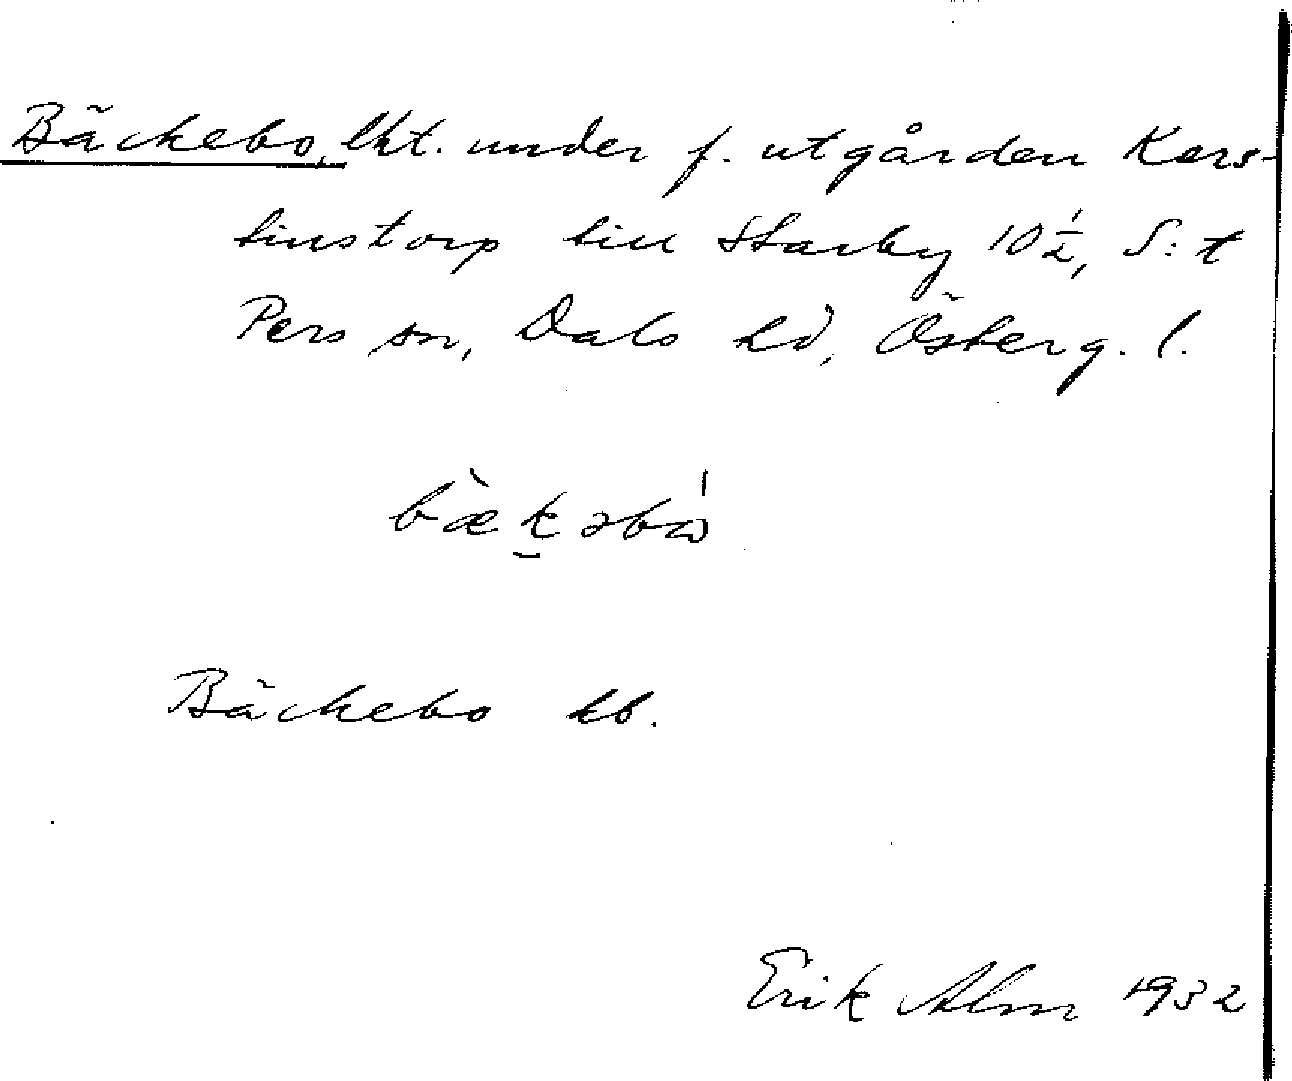 Bäckebo, lht. under f. utgården Kers-
tinstorp till Starby 10½, S:t
Pers sn, Dals hd, Österg. l.
bæ̀k̠əbɷ̍
Bäckebo kb.
Erik Alm 1932